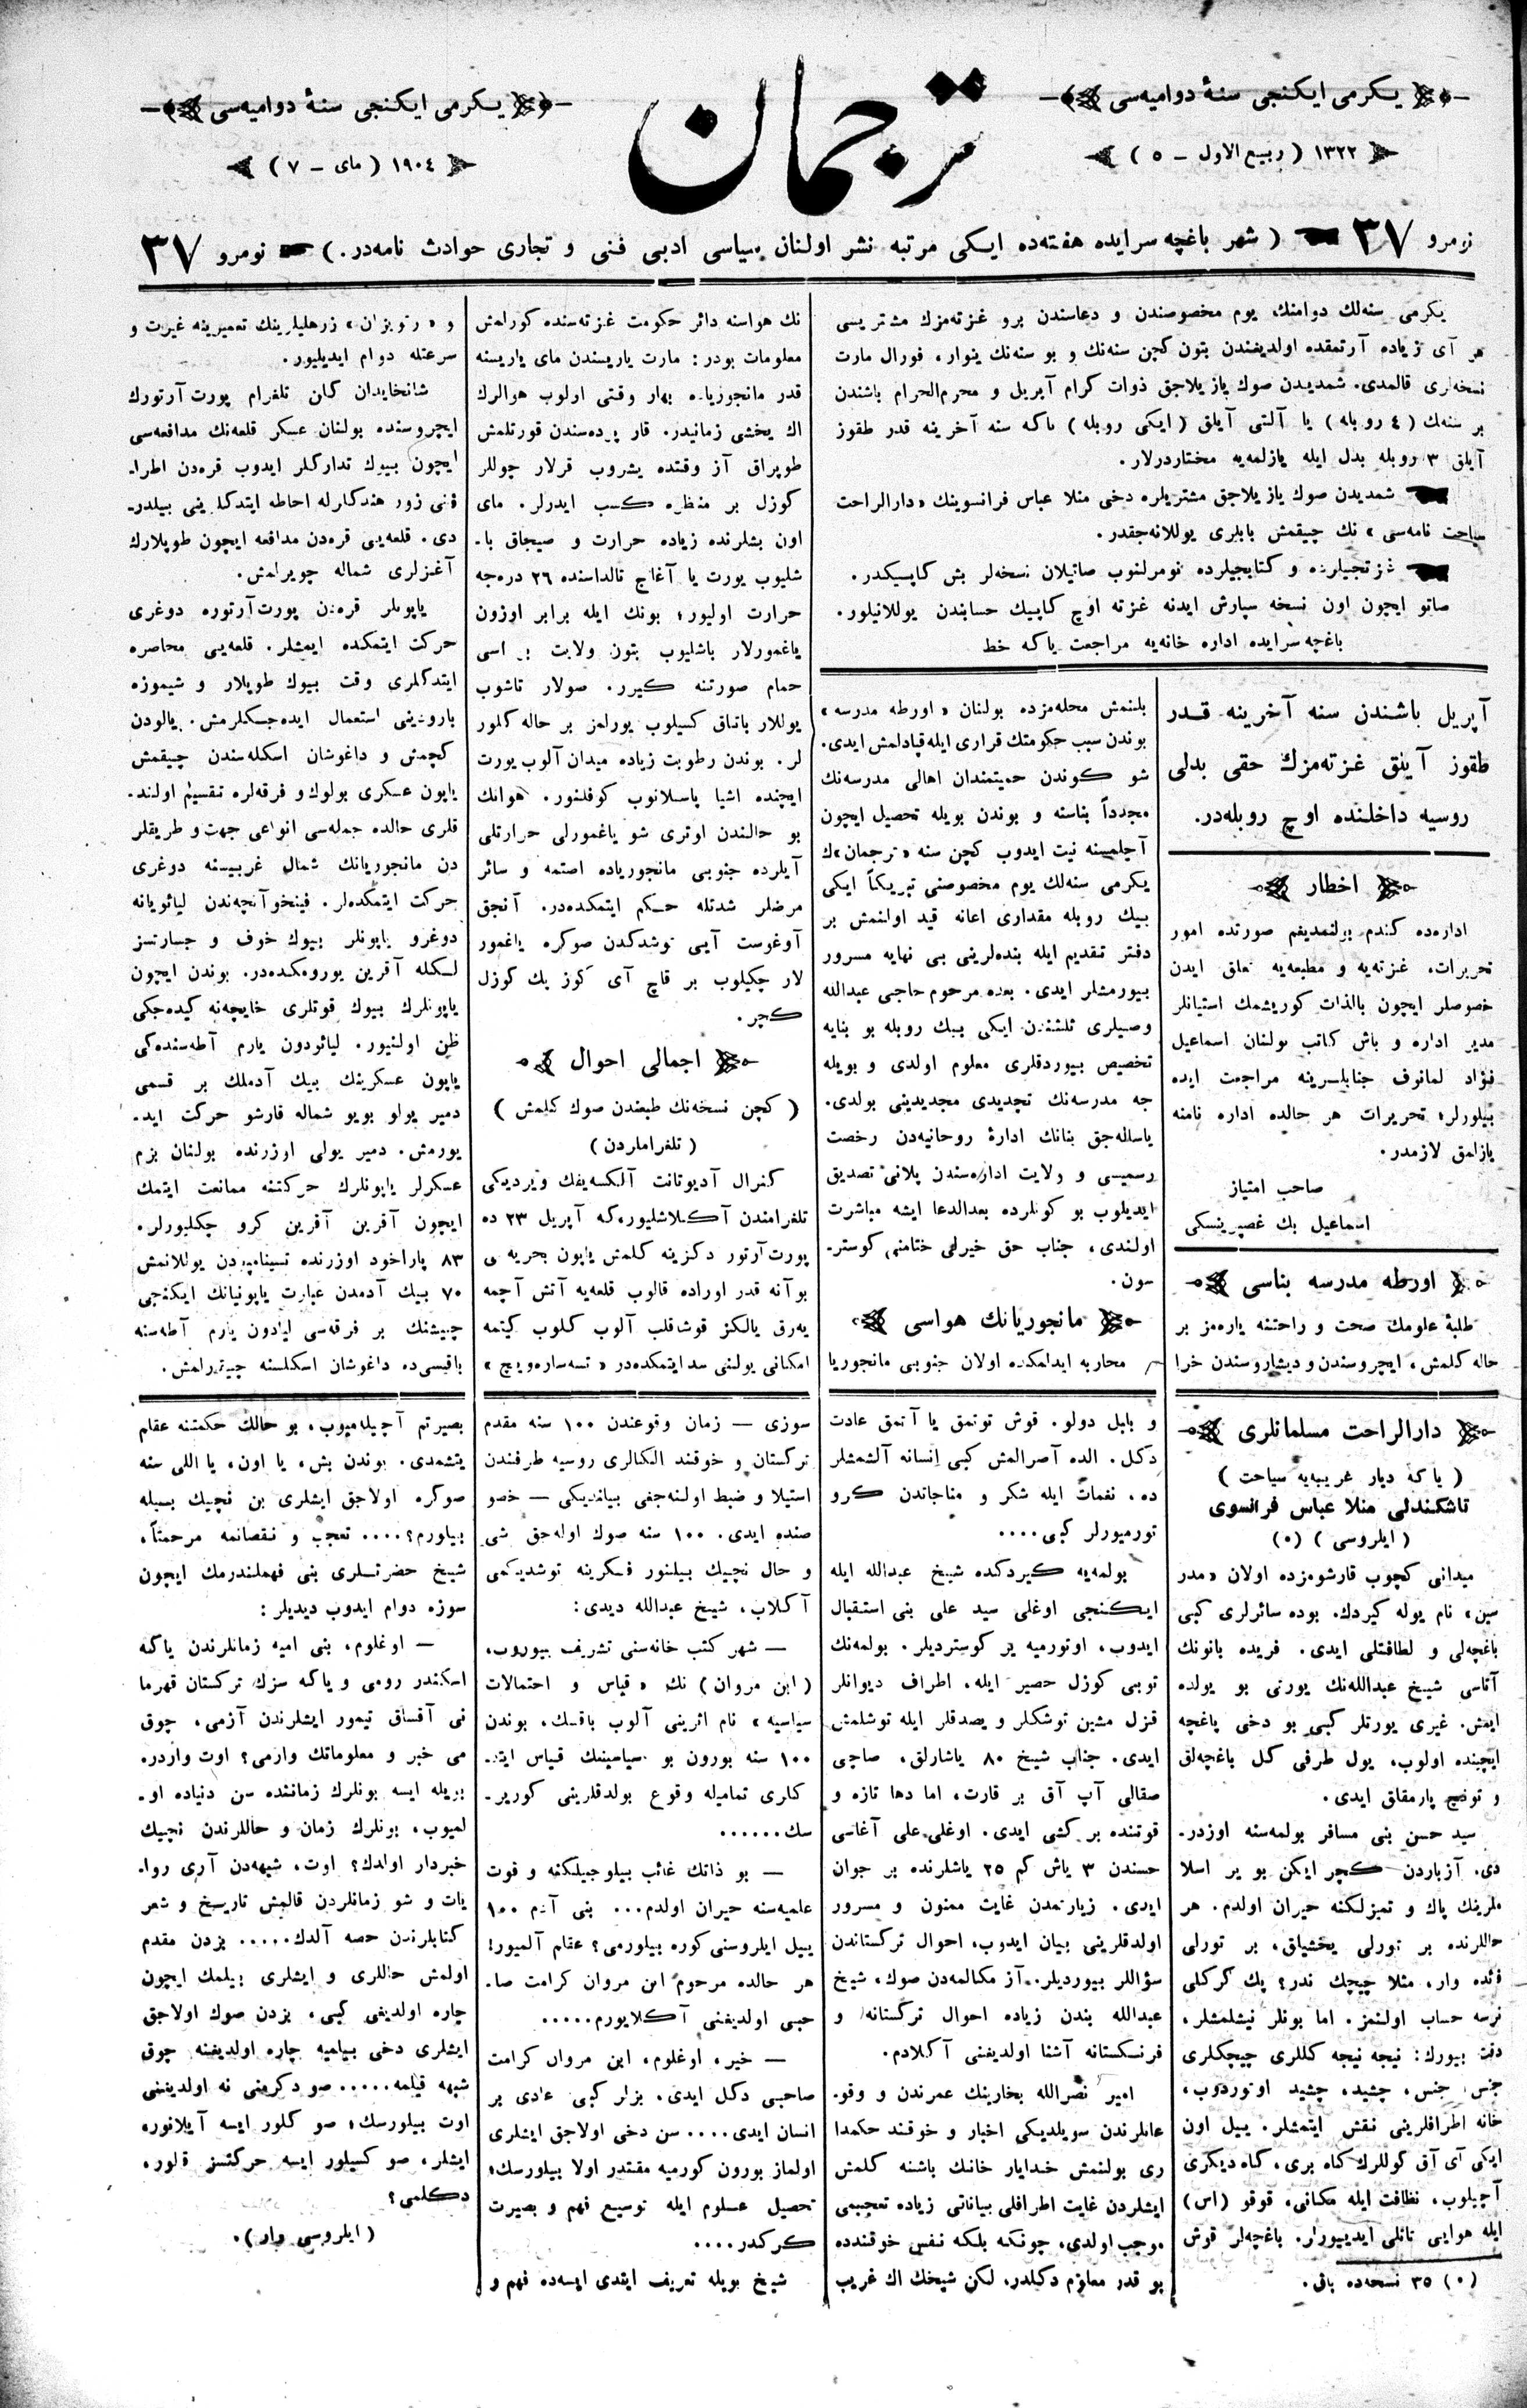 يكرمی ايكنجی سنۀ دواميه‌سی
ترجمان
يكرمی ايكنجی سنۀ دواميه‌سی
١٣٢٢ ( ربيع الاول ـ ٥ )
١٩٠٤ ( مای ـ ٧ )
نومرو ٣٧ ( شهر باغچه سرايده هفته‌ده ايكی مرتبه نشر اولنان سياسی ادبی فنی و تجاری حوادث نامه‌در. ) نومرو ٣٧
يكرمی سنه‌لك دوامنك، يوم مخصوصندن و دعاسندن برو غزته‌مزك مشتريسی
هر آی زياده آرتمقده اولديغندن بتون كچن سنه‌نك و بو سنه‌نك ينوار، فورال مارت
نسخه‌لری قالمدی. شمديدن صوك يازيلاجق ذوات كرام آپريل و محرم‌الحرام باشندن
بر سنه‌لك ( ٤ روبله ) يا آلتی آيلق ( ايكی روبله ) ياكه سنه آخرينه قدر طقوز
آيلق ٣ روبله بدل ايله يازلمه‌يه مختاردرلار.
شمديدن صوك يازيلاجق مشتريلره دخی منلا عباس فرانسوينك «دارالراحت
سياحت نامه‌سی» نك چيقمش بابلری يوللانه‌جقدر.
غزتجيلرده و كتابجيلرده نومرلنوب صاتيلان نسخه‌لر بش كاپيكدر.
صاتو ايچون اون نسخه سپارش ايدنه غزته اوچ كاپيك حسابندن يوللانيلور.
باغچه سرايده اداره خانه‌يه مراجعت ياكه خط
آپريل باشندن سنه آخرينه قدر
طقوز آيلق غزته‌مزك حقی بدلی
روسيه داخلنده اوچ روبله‌در.
اخطار
اداره‌ده كندم بولنمديغم صورتده امور
تحريرات، غزته‌يه و مطبعه‌يه تعلق ايدن
خصوصلر ايچون بالذات كوريشمك استيانلر
مدير اداره و باش كاتب بولنان اسماعيل
فؤاد لمانوف جنابلرينه مراجعت ايده
بيلورلر؛ تحريرات هر حالده اداره نامنه
يازلمق لازمدر.
صاحب امتياز
اسماعيل بك غصپرينسكی
اورطه مدرسه بناسی
طلبۀ علومك صحت و راحتنه يارەمز بر
حاله كلمش، ايچروسندن و ديشاروسندن خرا
بلنمش محله‌مزده بولنان «اورطه مدرسه»
بوندن سبب حكومتك قراری ايله قپادلمش ايدی.
شو كوندن حميتمندان اهالی مدرسه‌نك
مجدداً بناسنه و بوندن بويله تحصيل ايچون
آچلمسنه نيت ايدوب كچن سنه «ترجمان»ك
يكرمی سنه‌لك يوم مخصوصنی تبريكاً ايكی
بيك روبله مقداری اعانه قيد اولنمش بر
دفتر تقديم ايله بنده‌لرينی بی نهايه مسرور
بيورمشلر ايدی. بعده مرحوم حاجی عبدالله
وصيلری ثلثندن ايكی بيك روبله بو بنايه
تخصيص بيوردقلری معلوم اولدی و بويله
جه مدرسه‌نك تجديدی مجديدينی بولدی.
ياساله‌جق بنانك ادارۀ روحانيه‌دن رخصت
رسميسی و ولايت اداره‌سندن پلانی تصديق
ايديلوب بو كونلرده بعدالدعا ايشه مباشرت
اولندی، جناب حق خيرلی ختامنی كوستر-
سون.
مانجوريانك هواسی
محاربه ايدلمكده اولان جنوبی مانجوريا
نك هواسنه دائر حكومت غزته‌سنده كورلمش
معلومات بودر: مارت ياريسندن مای ياريسنه
قدر مانجورياده بهار وقتی اولوب هوالرك
اك يخشی زمانيدر. قار پرده‌سندن قورتلمش
طوپراق آز وقتده يشروب قرلار چوللر
كوزل بر منظره كسب ايدرلر. مای
اون بشلرنده زياده حرارت و صيجاق با-
شليوب يورت يا آغاج تالداسنده ٢٦ درەجه
حرارت اوليور؛ بونك ايله برابر اوزون
ياغمورلار باشليوب بتون ولايت بر اسی
حمام صورتنه كيرر. صولار تاشوب
يوللار باتاق كسيلوب يورلمز بر حاله كلور
لر. بوندن رطوبت زياده ميدان آلوب يورت
ايچنده اشيا پاسلانوب كوفلنور. هوانك
بو حالندن اوتری شو ياغمورلی حرارتلی
آيلرده جنوبی مانجورياده اصتمه و سائر
مرضلر شدتله حكم ايتمكده‌در. آنجق
آوغوست آيی توشدكدن صوكره ياغمور
لار چكيلوب بر قاچ آی كوز پك كوزل
كچر.
اجمالی احوال
( كچن نسخه‌نك طبعندن صوك كلمش )
( تلغراملردن )
كنرال آديوتانت آلكسه‌يفك ويرديكی
تلغرامندن آكلاشليور، كه آپريل ٢٣ ده
پورت آرتور دكزينه كلمش ياپون بحريه‌سی
بو آنه قدر اوراده قالوب قلعه‌يه آتش آچمه
يه‌رق يالكز قوشاقلب آلوب كلوب كيتمه
امكانی يولنی سد ايتمكده‌در «تسه‌ساره‌ويچ»
و «رتويزان» زرهليلرينك تعميرينه غيرت و
سرعتله دوام ايديليور.
شانخايدان كلن تلغرام پورت آرتورك
ايچروسنده بولنان عسكر قلعه‌نك مدافعه‌سی
ايچون بيوك تداركلر ايدوب قره‌دن اطرا-
فنی زور هندكلرله احاطه ايتدكلرينی بيلدر-
دی. قلعه‌يی قره‌دن مدافعه ايچون طوپلارك
آغزلری شماله چويرلمش.
ياپونلر قره‌دن پورت‌آرتوره دوغری
حركت ايتمكده ايمشلر. قلعه‌يی محاصره
ايتدكلری وقت بيوك طوپلار و شيموزه
بارودينی استعمال ايده‌جكلرمش. يالودن
كچمش و داغوشان اسكله‌سندن چيقمش
ياپون عسكری بولوك و فرقه‌لره تقسيم اولند-
قلری حالده جمله‌سی انواعی جهت و طريقلر
دن مانجوريانك شمال غربيسنه دوغری
حركت ايتمكده‌لر. فينخوآنچه‌ندن ليائويانه
دوغرو ياپونلر بيوك خوف و جسارتسز
لكله آقرين يورومكده‌در. بوندن ايچون
ياپونلرك بيوك قوتلری خايچه‌نه كيده‌جكی
ظن اولنيور. ليائودون يارم آطه‌سنده‌كی
ياپون عسكرينك بيك آدملك بر قسمی
دمير يولو بويو شماله قارشو حركت ايد-
يورمش. دمير يولی اوزرنده بولنان بزم
عسكرلر ياپونلرك حركتنه ممانعت ايتمك
ايچون آقرين آقرين كرو چكليورلر.
٨٣ پاراخود اوزرنده تسينامپودن يوللانمش
٧٠ بيك آدمدن عبارت ياپونيانك ايكنجی
چيشنك بر فرقه‌سی لياودون يارم آطه‌سنه
باقيسی‌ده داغوشان اسكلسنه چيقرلمش.
دارالراحت مسلمانلری
( ياكه ديار غريبه‌يه سياحت )
تاشكندلی منلا عباس فرانسوی
( ايلروسی ) (٠)
ميدانی كچوب قارشومزده اولان «مدر
سين» نام يوله كيردك. بوده سائرلری كبی
باغچه‌لی و لطافتلی ايدی. فريده بانونك
آتاسی شيخ عبدالله‌نك يورتی بو يولده
ايمش. غيری يورتلر كبی بو دخی باغچه
ايچنده اولوب، يول طرفی كل باغچه‌لق
و توضچ پارمقاق ايدی.
سيد حسن بنی مسافر بولمه‌سنه اوزدر-
دی. آزباردن كچر ايكن بو ير اسلا
ملرينك پاك و تميزلكنه حيران اولدم. هر
حاللرنده بر تورلی يخشيلق، بر تورلی
فائده وار، مثلا چيچك ندر؟ پك كركلی
نرسه حساب اولنمز. اما بونلر نيشلمشلر،
دقت بيورك: نيچه نيچه كللری چيچكلری
جنس جنس، چشيد، چشيد اوتوردوب،
خانه اطرافلرينی نقش ايتمشلر. ييل اون
ايكی آی آق كوللرك كاه بری، كاه ديكری
آچيلوب، نظافت ايله مكانی، قوقو (اس)
ايله هوايی تاتلی ايدييورلر. باغچه‌لر قوش
(٠) ٣٥ نسخه‌ده باق.
و بابل دولو. قوش تونمق يا آتمق عادت
دكل. الده آصرالمش كبی انسانه آلشمشلر
ده، نغمات ايله شكر و مناجاتدن كرو
تورميورلر كبی....
بولمه‌يه كيردكده شيخ عبدالله ايله
ايكنجی اوغلی سيد علی بنی استقبال
ايدوب، اوتورميه ير كوسترديلر. بولمه‌نك
توبی كوزل حصير ايله، اطراف ديوانلر
قزل مشين توشكلر و يصدقلر ايله توشلمش
ايدی. جناب شيخ ٨٠ ياشارلق، صاچی
صقالی آپ آق بر قارت، اما دها تازه و
قوتنده بر كشی ايدی. اوغلی علی آغاسی
حسندن ٣ ياش كم ٢٥ ياشلرنده بر جوان
ايدی. زيارتمدن غايت ممنون و مسرور
اولدقلرينی بيان ايدوب، احوال تركستاندن
سؤاللر بيورديلر. آز مكالمه‌دن صوك، شيخ
عبدالله بندن زياده احوال تركستانه و
فرنكستانه آشنا اولديغنی آكلادم.
امير نصرالله بخارينك عمرندن و وقو-
عاتلرندن سويلديكی اخبار و خوقند حكمدا
ری بولنمش خدايار خانك باشنه كلمش
ايشلردن غايت اطرافلی بياناتی زياده تعجبمی
موجب اولدی، چونكه بلكه نفس خوقندده
بو قدر معلوم دكلدر، لكن شيخك اك غريب
سوزی — زمان وقوعندن ١٠٠ سنه مقدم
تركستان و خوقند الكالری روسيه طرفندن
استيلا و ضبط اولنه‌جغی بيانديكی — خصو
صنده ايدی. ١٠٠ سنه صوك اوله‌جق شی
و حال نچيك بيلنور فكرينه توشديكمی
آكلاب، شيخ عبدالله ديدی:
— شهر كتب خانه‌سنی تشريف بيوروب،
(ابن مروان) نك «قياس و احتمالات
سياسيه» نام اثرينی آلوب باقسك، بوندن
١٠٠ سنه بورون بو سياسينك قياس ايتد-
كلری تماميله وقوع بولدقلرينی كورير-
سك......
— بو ذاتك غائب بيلوجيلكنه و قوت
علميه‌سنه حيران اولدم... بنی آدم ١٠٠
ييل ايلروسنی كوره بيلورمی؟ عقلم آلميور!
هر حالده مرحوم ابن مروان كرامت صا-
حبی اولديغنی آكلايورم.....
— خير، اوغلوم، ابن مروان كرامت
صاحبی دكل ايدی، بزلر كبی عادی بر
انسان ايدی.... سن دخی اولاجق ايشلری
اولماز بورون كورميه مقتدر اولا بيلورسك؛
تحصيل علوم ايله توسيع فهم و بصيرت
كركدر....
شيخ بويله تعريف ايتدی ايسه‌ده فهم و
بصيرتم آچيله‌ميوب، بو حالك حكمتنه عقلم
يتشمدی. بوندن بش، يا اون، يا اللی سنه
صوكره اولاجق ايشلری بن نچيك بسبله
بيلورم؟.... تعجب و نقصانمه مرحمتاً،
شيخ حضرتلری بنی فهملندرمك ايچون
سوزه دوام ايدوب ديديلر:
— اوغلوم، بنی اميه زمانلرندن ياكه
اسكندر رومی و ياكه سزك تركستان قهرما
نی آقساق تيمور ايشلرندن آزمی، چوق
می خبر و معلوماتك وارمی؟ اوت واردر.
بويله ايسه بونلرك زماننده سن دنياده او-
لميوب، بونلرك زمان و حاللرندن نچيك
خبردار اولدك؟ اوت، شبهه‌دن آری روا-
يات و شو زمانلردن قالمش تاريخ و شعر
كتابلرندن حصه آلدك..... بزدن مقدم
اولمش حاللری و ايشلری بيلمك ايچون
چاره اولديغی كبی، بزدن صوك اولاجق
ايشلری دخی بيلميه چاره اولديغنه چوق
شبهه قيلمه..... صو دكرمنی نه اولديغنی
اوت بيلورسك؛ صو كلور ايسه آيلانور،
ايشلر، صو كسيلور ايسه حركتسز قلور،
دكلمی؟
( ايلروسی وار ).